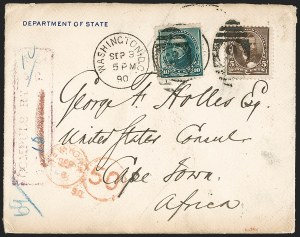 DEPARTMENT OF STATE
WASHINGTON, D.C.
SEP 3
5 PM
90
George F. Hollis Esq.
United States Consul
Cape Town
Africa